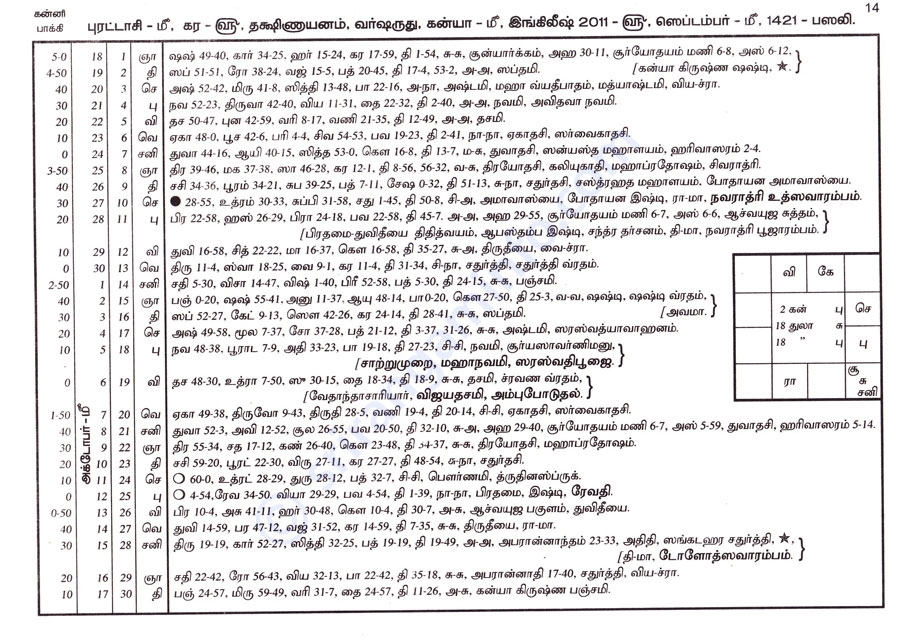 14
கன்னி
பாக்கி
புரட்டாசி - மீ, கர - ௵, தக்ஷிணாயனம், வர்ஷருது, கன்யா - மீ, இங்கிலீஷ் 2011 - ௵, ஸெப்டம்பர் - மீ, 1421 - பஸலி.
5-0 18 1 ஞா ஷஷ் 49-40, கார் 34-25, ஹர் 15-24, கர 17-59, தி 1-54, சு-சு, சூன்யார்க்கம், அஹ 30-11, சூர்யோதயம் மணி 6-8, அஸ் 6-12,
4-50 19 2 தி ஸப் 51-51, ரோ 38-24, வஜ் 15-5, பத் 20-45, தி 17-4, 53-2, அ-அ, ஸப்தமி. [கன்யா கிருஷ்ண ஷஷ்டி, ★.
40 20 3 செ அஷ் 52-42, மிரு 41-8, ஸித்தி 13-48, பா 22-16, அ-நா, அஷ்டமி, மஹா வ்யதீபாதம், மத்யாஷ்டமி, விய-ச்ரா.
30 21 4 பு நவ 52-23, திருவா 42-40, விய 11-31, தை 22-32, தி 2-40, அ-அ, நவமி, அவிதவா நவமி.
20 22 5 வி தச 50-47, புன 42-59, வரி 8-17, வணி 21-35, தி 12-49, அ-அ, தசமி.
10 23 6 வெ ஏகா 48-0, பூச 42-6, பரி 4-4, சிவ 54-53, பவ 19-23, தி 2-41, நா-நா, ஏகாதசி, ஸர்வைகாதசி.
0 24 7 சனி துவா 44-16, ஆயி 40-15, ஸித்த 53-0, கௌ 16-8, தி 13-7, ம-சு, துவாதசி, ஸன்யஸ்த மஹாளயம், ஹரிவாஸரம் 2-4.
3-50 25 8 ஞா திர 39-46, மக 37-38, ஸா 46-28, கர 12-1, தி 8-56, 56-32, வ-சு, திரயோதசி, கலியுகாதி, மஹாப்ரதோஷம், சிவராத்ரி.
40 26 9 தி சசி 34-36, பூரம் 34-21, சுப 39-25, பத் 7-11, சேஷ 0-32, தி 51-13, சு-நா, சதுர்தசி, சஸ்த்ரஹத மஹாளயம், போதாயன அமாவாஸ்யை.
30 27 10 செ ● 28-55, உத்ரம் 30-33, சுப்பி 31-58, சது 1-45, தி 50-8, சி-அ, அமாவாஸ்யை, போதாயன இஷ்டி, ரா-மா, நவராத்ரி உத்ஸவாரம்பம்.
20 28 11 பு பிர 22-58, ஹஸ் 26-29, பிரா 24-18, பவ 22-58, தி 45-7, அ-அ, அஹ 29-55, சூர்யோதயம் மணி 6-7, அஸ் 6-6, ஆச்வயுஜ சுத்தம்,
[பிரதமை-துவிதீயை திதித்வயம், ஆபஸ்தம்ப இஷ்டி, சந்த்ர தர்சனம், தி-மா, நவராத்ரி பூஜாரம்பம்.
10 29 12 வி துவி 16-58, சித் 22-22, மா 16-37, கௌ 16-58, தி 35-27, சு-அ, திருதீயை, வை-ச்ரா.
0 30 13 வெ திரு 11-4, ஸ்வா 18-25, வை 9-1, கர 11-4, தி 31-34, சி-நா, சதுர்த்தி, சதுர்த்தி வ்ரதம்.
2-50 1 14 சனி சதி 5-30, விசா 14-47, விஷ் 1-40, பிரீ 52-58, பத் 5-30, தி 24-15, சு-சு, பஞ்சமி.
40 2 15 ஞா பஞ் 0-20, ஷஷ் 55-41, அனு 11-37, ஆயு 48-14, பா 0-20, கௌ 27-50, தி 25-3, வ-வ, ஷஷ்டி, ஷஷ்டி வ்ரதம்,
30 3 16 தி ஸப் 52-27, கேட் 9-13, ஸௌ 42-26, கர 24-14, தி 28-41, சு-சு, ஸப்தமி. [அவமா.
20 4 17 செ அஷ் 49-58, மூல 7-37, சோ 37-28, பத் 21-12, தி 3-37, 31-26, சு-சு, அஷ்டமி, ஸரஸ்வத்யாவாஹனம்.
10 5 18 பு நவ 48-38, பூராட 7-9, அதி 33-23, பா 19-18, தி 27-23, சி-சி, நவமி, சூர்யஸாவர்ணிமனு,
[சாற்றுமுறை, மஹாநவமி, ஸரஸ்வதிபூஜை.
0 6 19 வி தச 48-30, உத்ரா 7-50, ஸு 30-15, தை 18-34, தி 18-9, சு-சு, தசமி, ச்ரவண வ்ரதம்,
[வேதாந்தாசாரியார், விஜயதசமி, அம்புபோடுதல்.
அக்டோபர் - மீ
1-50 7 20 வெ ஏகா 49-38, திருவோ 9-43, திருதி 28-5, வணி 19-4, தி 20-14, சி-சி, ஏகாதசி, ஸர்வைகாதசி.
40 8 21 சனி துவா 52-3, அவி 12-52, சூல 26-55, பவ 20-50, தி 32-10, சு-அ, அஹ 29-40, சூர்யோதயம் மணி 6-7, அஸ் 5-59, துவாதசி, ஹரிவாஸரம் 5-14.
30 9 22 ஞா திர 55-34, சத 17-12, கண் 26-40, கௌ 23-48, தி 54-37, சு-சு, திரயோதசி, மஹாப்ரதோஷம்.
20 10 23 தி சசி 59-20, பூரட் 22-30, விரு 27-11, கர 27-27, தி 48-54, சு-நா, சதுர்தசி.
10 11 24 செ ○ 60-0, உத்ரட் 28-29, துரு 28-12, பத் 32-7, சி-சி, பௌர்ணமி, த்ருதினஸ்ப்ருக்.
0 12 25 பு ○ 4-54, ரேவ 34-50, வியா 29-29, பவ 4-54, தி 1-39, நா-நா, பிரதமை, இஷ்டி, ரேவதி.
0-50 13 26 வி பிர 10-4, அசு 41-11, ஹர் 30-48, கௌ 10-4, தி 30-7, அ-சு, ஆச்வயுஜ பகுளம், துவிதீயை.
40 14 27 வெ துவி 14-59, பர 47-12, வஜ் 31-52, கர 14-59, தி 7-35, சு-சு, திருதீயை, ரா-மா.
30 15 28 சனி திரு 19-19, கார் 52-27, ஸித்தி 32-25, பத் 19-19, தி 19-49, அ-அ, அபரான்னாந்தம் 23-33, அதிதி, ஸங்கடஹர சதுர்த்தி, ★,
[தி-மா, டோளோத்ஸவாரம்பம்.
20 16 29 ஞா சதி 22-42, ரோ 56-43, விய 32-13, பா 22-42, தி 35-18, சு-சு, அபரான்னாதி 17-40, சதுர்த்தி, விய-ச்ரா.
10 17 30 தி பஞ் 24-57, மிரு 59-49, வரி 31-7, தை 24-57, தி 11-26, அ-சு, கன்யா கிருஷ்ண பஞ்சமி.
வி கே
2 கன் பு செ
18 துலா சு
18 " பு பு
ரா சூ
சு
சனி